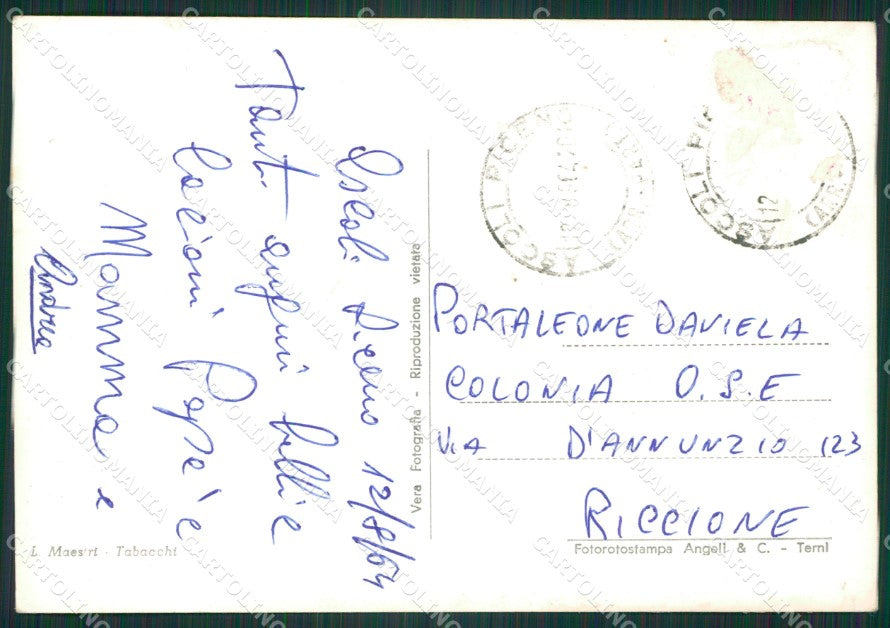 Ascoli Piceno 12/8/64
Tanti auguri belli e
bacioni Papà e
Mamma e
Andrea
Vera Fotografia - Riproduzione vietata
L. Maestri - Tabacchi
ASCOLI PICENO
ASCOLI PI
12
PORTALEONE DANIELA
COLONIA O.S.E
VIA D'ANNUNZIO 123
RICCIONE
Fotorotostampa Angeli & C. - Terni
CARTOLINOMANIA